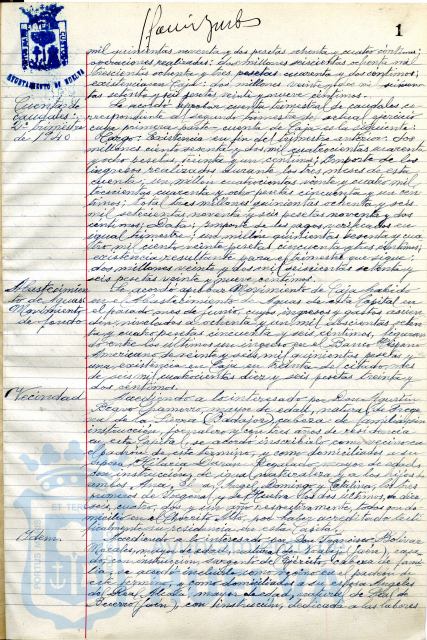 1
AYUNTAMIENTO DE HUELVA
mil quinientas noventa y dos pesetas ochenta y cuatro céntimos;
operaciones realizadas: dos millones seiscientos ochenta mil
trescientos ochenta y tres pesetas cuarenta y dos céntimos;
existencia en Caja: dos millones veinte y dos mil
y seis pesetas veinte y nueve céntimos.
Cuenta de
caudales:
2º trimestre
de 1940
Se acordó aprobar cuenta trimestral de caudales, co-
rrespondiente al segundo trimestre del actual ejercicio
cuya primera parte cuenta de Caja es la siguiente:
Cargo: Existencia en fin del trimestre anterior: dos
millones ciento sesenta y dos mil cuatrocientas cuarenta
y ocho pesetas, treinta y un céntimos; Importe de los
ingresos realizados durante los tres meses de esta
cuenta: un millón cuatrocientas veinte y cuatro mil
cuarenta y ocho pesetas cincuenta y un cén-
timos; total tres millones quinientas ochenta y seis
mil seiscientas noventa y seis pesetas noventa y dos
céntimos; Data: Importe de los pagos verificados en
igual trimestre: un millón quinientas sesenta y cua-
tro mil ciento veinte pesetas cincuenta y tres céntimos;
existencia resultante para el trimestre que sigue:
dos millones veinte y dos mil seiscientos setenta y
seis pesetas veinte y nueve céntimos.
Abastecimien-
to de Aguas:
Movimiento
de fondos
Se acordó aprobar Movimiento de Caja habido
en el Abastecimiento de Aguas de esta Capital en
el pasado mes de junio, cuyos ingresos y gastos ascien-
den, nivelados a ochenta y un mil doscientas ochen-
ta y cuatro pesetas cincuenta y seis céntimos, figuran-
do entre los últimos un ingreso en el Banco Hispano
Americano de veinte y seis mil quinientas pesetas y
una existencia en Caja en treinta del citado mes
de seis mil cuatrocientas diez y seis pesetas treinta y
dos céntimos.
Vecindad
Accediendo a lo interesado por Don Agustín
mayor de edad, natural de Frege-
nal de la Sierra (Badajoz), cabeza de familia, con
instrucción, y con tres años de residencia
en esta Capital, se acordó inscribirlo como vecino en
el padrón de este término, y como domiciliados a su
esposa mayor de edad,
con instrucción, de igual naturaleza y a los hijos de
ambos Ana, José, Angel, Domingo y Catalina, los tres
primeros de Fregenal, y de Huelva los dos últimos, de diez,
seis, cuatro, dos y un año respectivamente, todos con do-
micilio en el Barrio Alto, por haber acreditado testi-
ficalmente su residencia en esta Capital.
Idem
Accediendo a lo interesado por Don Francisco Bolívar
Morales, mayor de edad, natural de (Jaén), casa-
do, con instrucción, Sargento del Ejército, cabeza de fami-
lia, se acordó incluirlo como vecino en el padrón de
este término, y como domiciliados a su esposa Angeles
del Real Alcalá, mayor de edad, natural de Real de
Becerro (Jaén), con instrucción, dedicada a las labores